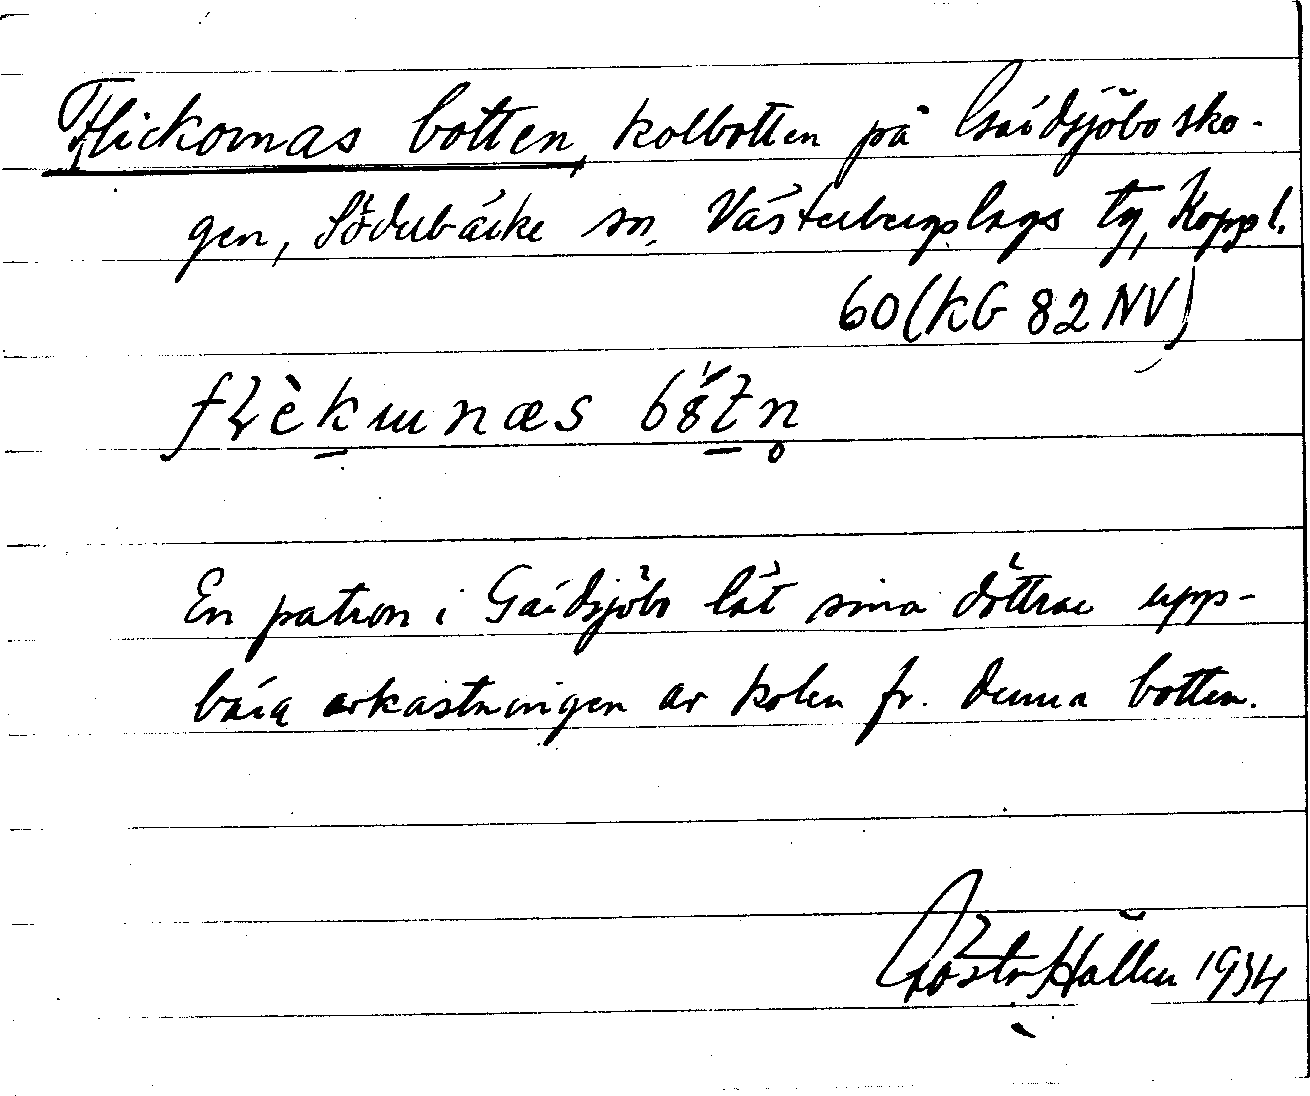 Flickornas botten, kolbotten på Gårdsjöbo sko-
gen, Söderbärke sn, Västerbergslags tg, Koppl.
60 (KG 82 NV)
En patron i Gårdsjöbo lät sina döttrar upp-
bära avkastningen av kolen fr. denna botten.
Gösta Hallen 1934